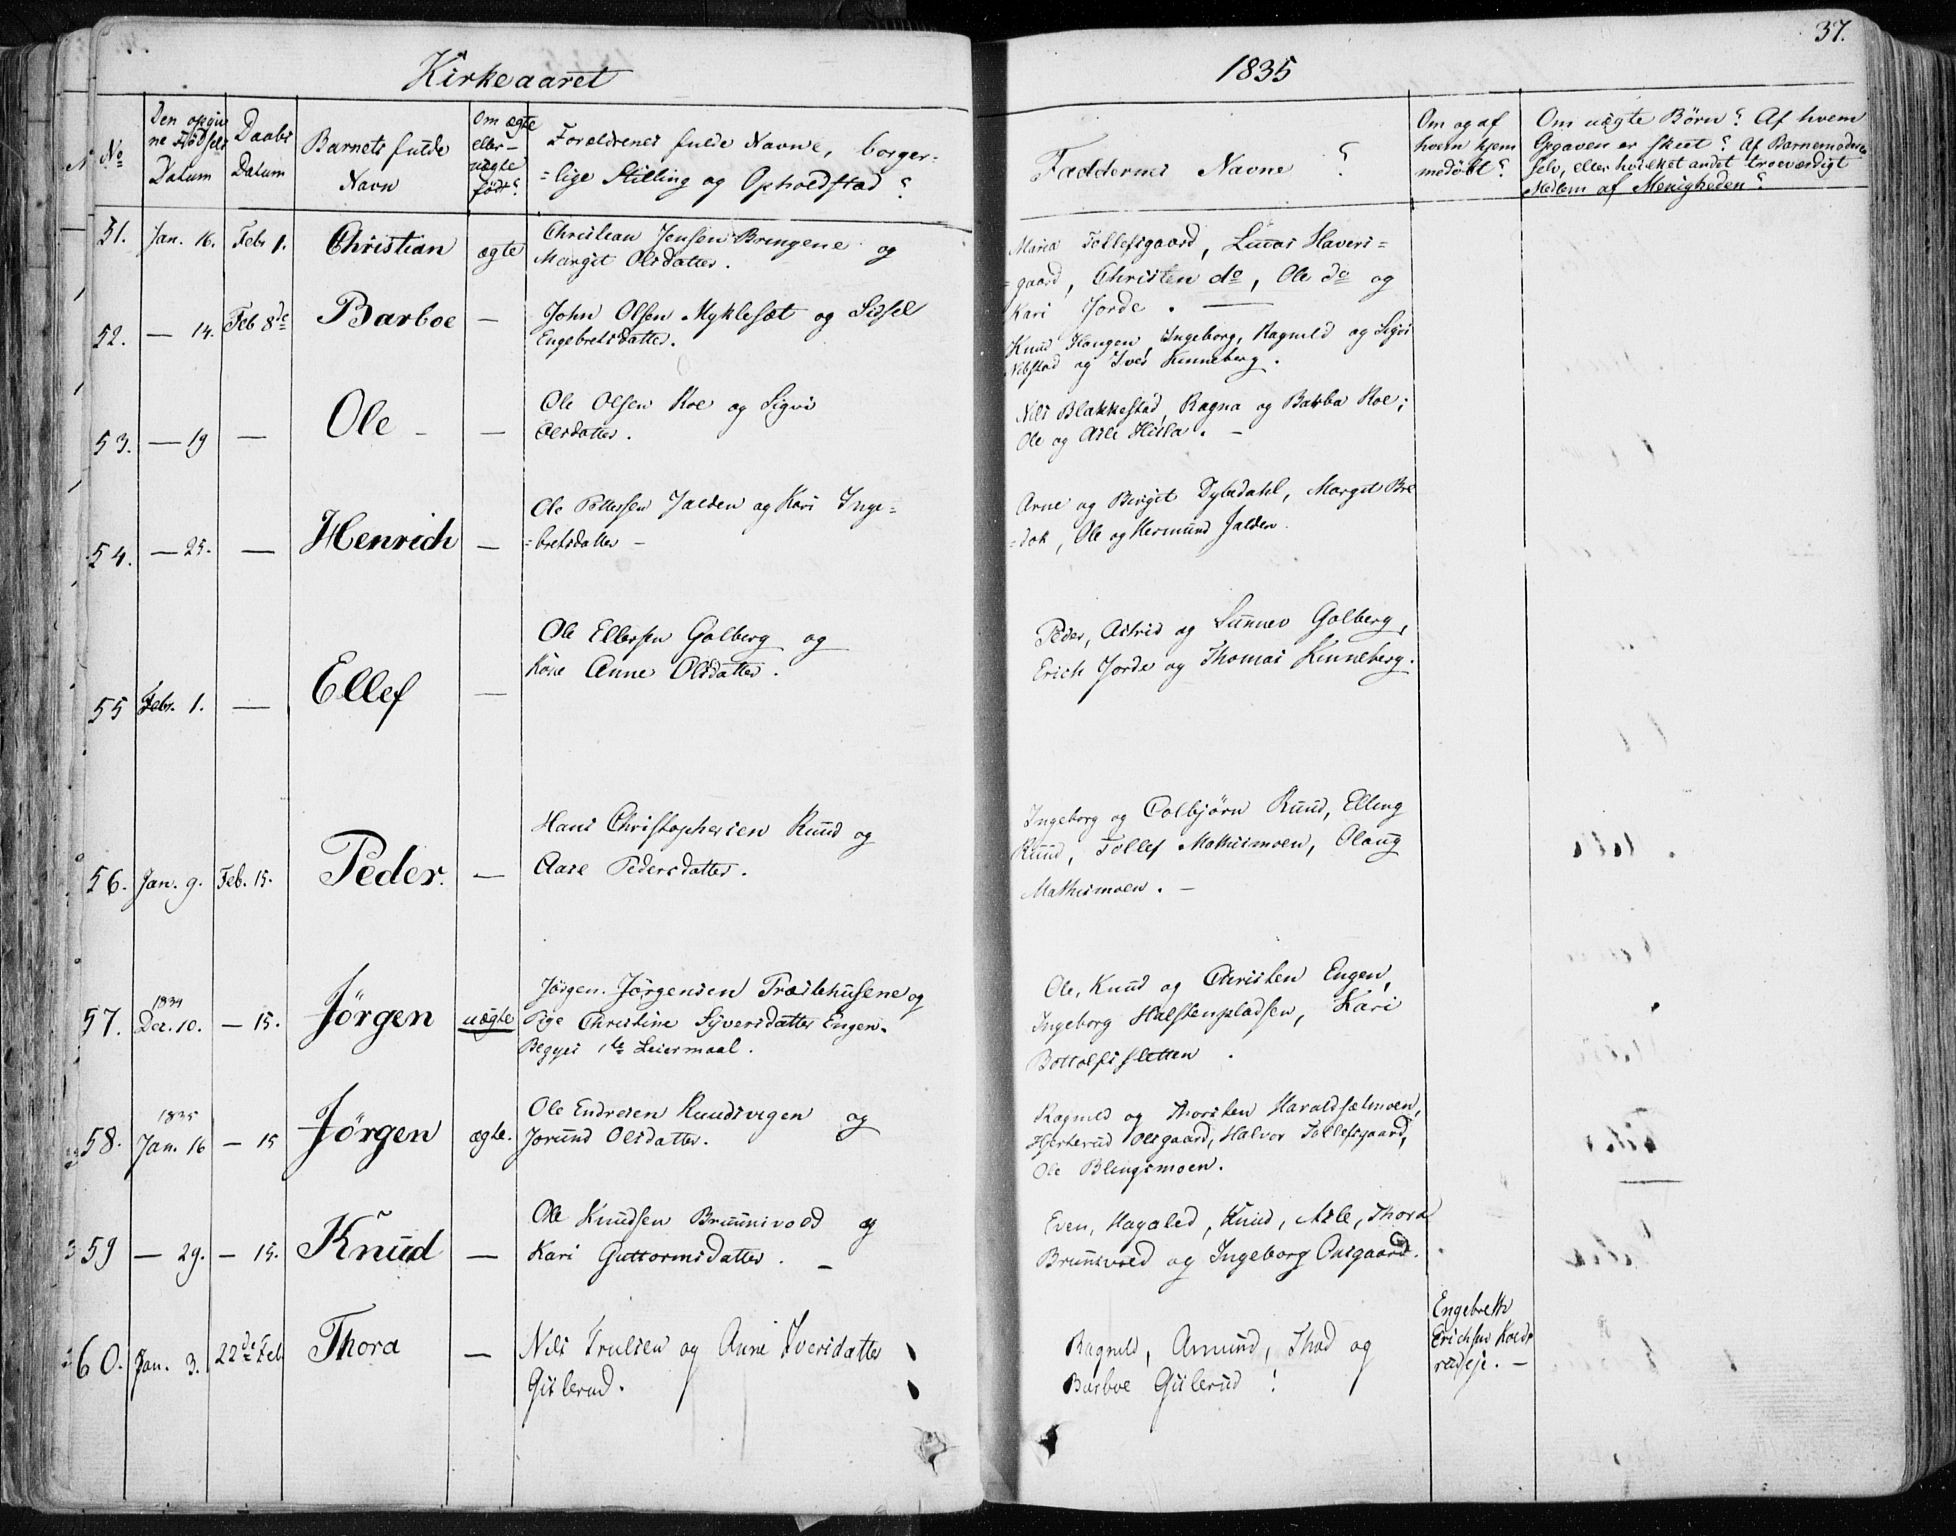 37.
Kirkeaaret 1835
No
Den opgiv
ne Fødsels
Datum
Daabs
Datum
Barnets fulde
Navn
Om ægte
eller
uægte
født?
Forældrenes fulde Navne, borger-
=lige Stilling og Opholdstad?
Faddernes Navne?
Om og af
hvem hjem
medøbt?
Om uægte Børn? Af hvem
Opgaven er skeet? Af Barnemoderen
selv, eller hvilket andet troeværdigt
Medlem af Menigheden?
51. Jan. 16. Febr 1. Christian ægte
Christian Jensen Bringene og
Margit Olsdatter.
Maria Tollefsgaard, Haveris=
=gaard, Christen do, Ole do og
Kari Jorde.
52. — 14. Feb 8de Barboe —
John Olsen Myklesæt og Sidsel
Engebretsdatter.
Knud Haugen, Ingeborg, Ragnild og Sigri
Nibstad og Iver Kinneberg.
53. — 19 — Ole —
Ole Olsen Roe og Sigri
Olsdatter.
Nils Blakkestad, Ragna og Barba Roe;
Ole og Asle Hilla. —
54. — 25. — Henrich —
Ole Pettersen Jalden og Kari Inge=
=bretsdatter —
Arne og Birgit Dyladahl, Margit Bre
=dok, Ole og Hermund Jalden.
55 Febr. 1. — Ellef —
Ole Ellefsen Golberg og
Kone Anne Olsdatter.
Peder, Astrid og Sunnev Golberg,
Erich Jorde og Thomas Kinneberg.
56. Jan. 9. Feb. 15. Peder. —
Hans Christophersen Ruud og
Aase Pedersdatter.
Ingeborg og Colbjörn Ruud, Elling
Ruud, Tollef Mathismoen, Olaug
Mathismoen. —
57. 1834
Dec. 10. — 15. Jörgen uægte
Jörgen Jörgensen Træstehusene og
Pige Christine Syversdatter Engen.
Begges 1te Leiermaal.
Ole, Knud og Christen Engen,
Ingeborg Halstenspladsen, Kari
Bottolfssletten.
58. 1835
Jan. 16 — 15 Jörgen ægte.
Ole Endresen Ruudsvegen og
Jorund Olsdatter.
Ragnild og Thorsten Haraldsætmoen,
Hjerterud Olsgaard, Halvor Tollefsgaard,
Ole Blingsmoen.
59 — 29. — 15. Knud —
Ole Knudsen Bruunsvold og
Kari Guttormsdatter. —
Even, Hagaled, Knud, Asle, Thora
Bruunsvold og Ingeborg Opsgaard.
60. Jan. 3. 22de Feb. Thora —
Nils Trulsen og Anne Iversdatter
Gulerud.
Ragnild, Amund, Thod og
Barboe Gulerud.
Engebreth
Erichsen
rudeje. —